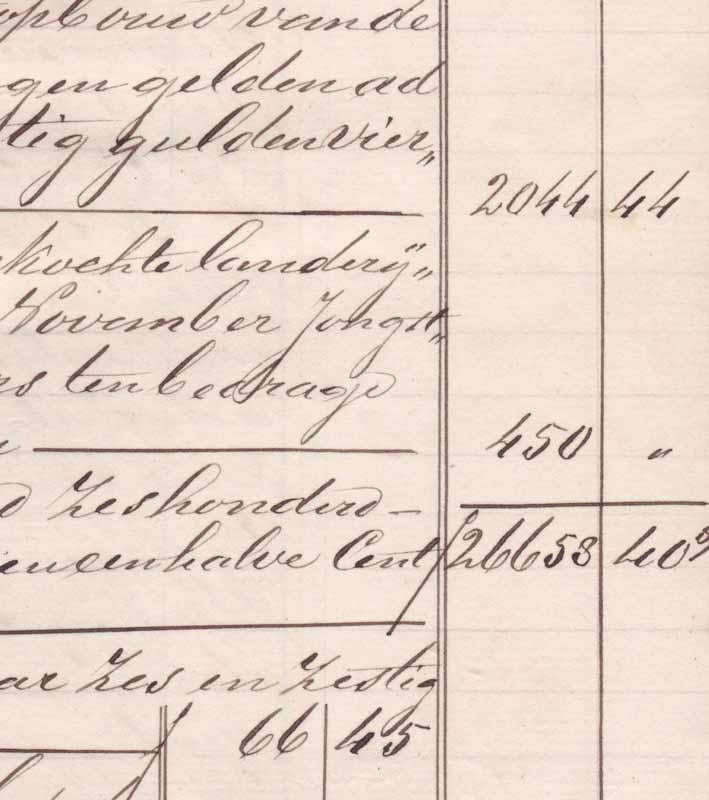 opbouw van de
gen gelden ad
tig gulden vier„
2044 44
kochte landerij„
November Jongst„
ns ten bedrage
450 „
Zeshonderd –
eneenhalve Cent 26653 40⁵
ar Zes en Zestig
66 45